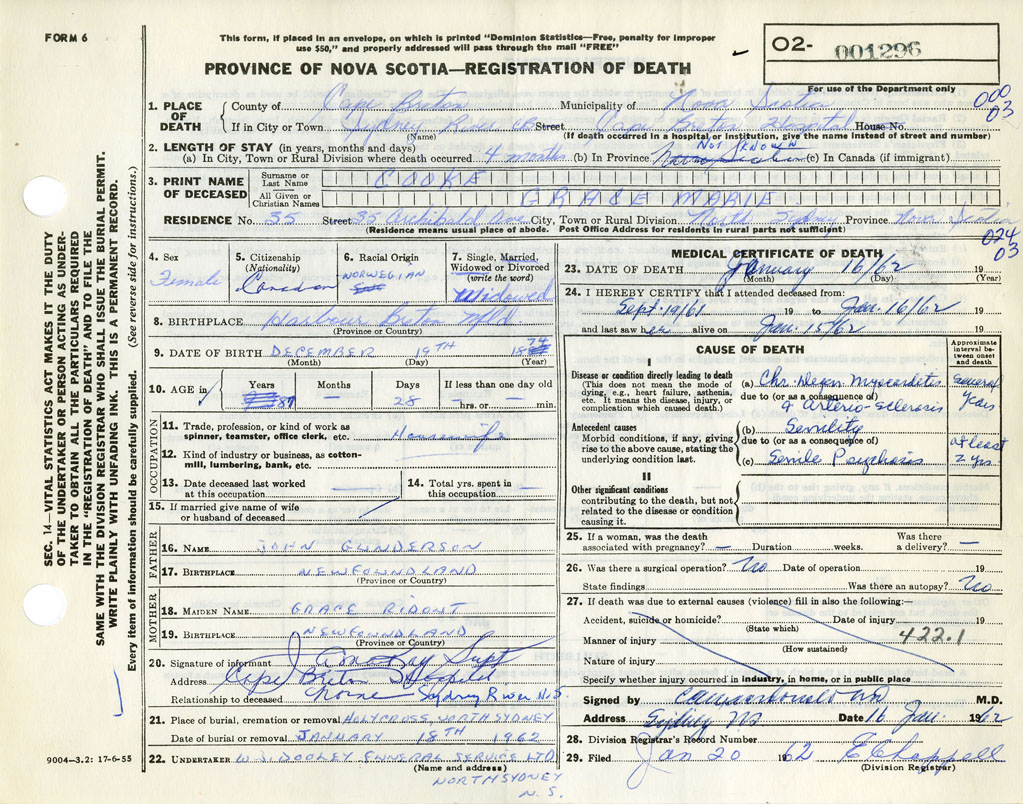 FORM 6
This form, if placed in an envelope, on which is printed "Dominion Statistics—Free, penalty for improper
use $50," and properly addressed will pass through the mail "FREE"
PROVINCE OF NOVA SCOTIA—REGISTRATION OF DEATH
O2- 001296
For use of the Department only
000
03
1. PLACE OF DEATH
County of Cape Breton Municipality of Nova Scotia
If in City or Town Sydney River CB Street Cape Breton Hospital House No.
(Name) (If death occurred in a hospital or institution, give the name instead of street and number)
2. LENGTH OF STAY (in years, months and days)
NOT KNOWN
(a) In City, Town or Rural Division where death occurred 4 months (b) In Province (c) In Canada (if immigrant)
3. PRINT NAME OF DECEASED
Surname or Last Name COOKE
All Given or Christian Names GRACE MARIE
RESIDENCE No. 35 Street 35 Archibald Ave City, Town or Rural Division North Sydney Province Nova Scotia
(Residence means usual place of abode. Post Office Address for residents in rural parts not sufficient)
024
03
4. Sex Female
5. Citizenship (Nationality) Canadian
6. Racial Origin NORWEGIAN
7. Single, Married, Widowed or Divorced (write the word) Widowed
8. BIRTHPLACE Harbour Breton Nfld.
(Province or Country)
9. DATE OF BIRTH DECEMBER 19TH 1874
(Month) (Day) (Year)
10. AGE in
Years Months Days If less than one day old
87 — 28 — hrs. or — min.
OCCUPATION
11. Trade, profession, or kind of work as
spinner, teamster, office clerk, etc. Housewife
12. Kind of industry or business, as cotton-
mill, lumbering, bank, etc.
13. Date deceased last worked
at this occupation
14. Total yrs. spent in
this occupation
15. If married give name of wife
or husband of deceased
FATHER
16. NAME JOHN GUNDERSON
17. BIRTHPLACE NEWFOUNDLAND
(Province or Country)
MOTHER
18. MAIDEN NAME GRACE RIDOUT
19. BIRTHPLACE NEWFOUNDLAND
(Province or Country)
20. Signature of informant Supt
Address Cape Breton Hospital
Relationship to deceased none Sydney River N.S.
21. Place of burial, cremation or removal HOLYCROSS NORTH SYDNEY
Date of burial or removal JANUARY 18TH 1962
22. UNDERTAKER W.J. DOOLEY FUNERAL SERVICE LTD
(Name and address)
NORTH SYDNEY
N.S.
9004—3.2: 17-6-55
MEDICAL CERTIFICATE OF DEATH
23. DATE OF DEATH January 16/62 19
(Month) (Day) (Year)
24. I HEREBY CERTIFY that I attended deceased from:
Sept. 19/61 19 to Jan. 16/62 19
and last saw her alive on Jan. 15/62 19
CAUSE OF DEATH
Approximate interval between onset and death
I
Disease or condition directly leading to death
(This does not mean the mode of
dying, e.g., heart failure, asthenia,
etc. It means the disease, injury, or
complication which caused death.)
(a) Chr. Degen Myocarditis several
due to (or as a consequence of) years
& Arterio-sclerosis
Antecedent causes
Morbid conditions, if any, giving
rise to the above cause, stating the
underlying condition last.
(b) Senility
due to (or as a consequence of) at least
(c) Senile Psychosis 2 yrs
II
Other significant conditions
contributing to the death, but not
related to the disease or condition
causing it.
25. If a woman, was the death
associated with pregnancy? — Duration weeks. Was there
a delivery? —
26. Was there a surgical operation? No Date of operation 19
State findings Was there an autopsy? No
27. If death was due to external causes (violence) fill in also the following:—
Accident, suicide or homicide? Date of injury 19
(State which)
422.1
Manner of injury
(How sustained)
Nature of injury
Specify whether injury occurred in industry, in home, or in public place
Signed by M.D.
Address Sydney NS Date 16 Jan. 1962
28. Division Registrar's Record Number
29. Filed Jan 20 1962 E Chappell
(Division Registrar)
SEC. 14—VITAL STATISTICS ACT MAKES IT THE DUTY
OF THE UNDERTAKER OR PERSON ACTING AS UNDER-
TAKER TO OBTAIN ALL THE PARTICULARS REQUIRED
IN THE "REGISTRATION OF DEATH" AND TO FILE THE
SAME WITH THE DIVISION REGISTRAR WHO SHALL ISSUE THE BURIAL PERMIT.
WRITE PLAINLY WITH UNFADING INK. THIS IS A PERMANENT RECORD.
Every item of information should be carefully supplied. (See reverse side for instructions.)